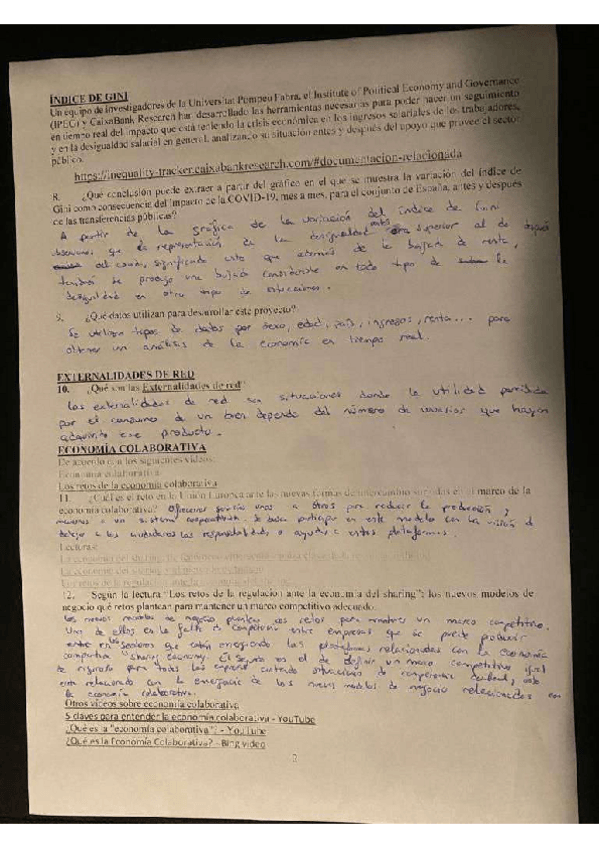 ÍNDICE DE GINI
Un equipo de investigadores de la Universitat Pompeu Fabra, el Institute of Political Economy and Governance
(IPEG) y CaixaBank Research han desarrollado las herramientas necesarias para poder hacer un seguimiento
en tiempo real del impacto que está teniendo la crisis económica en los ingresos salariales de los trabajadores,
y en la desigualdad salarial en general, analizando su situación antes y después del apoyo que provee el sector
público.
https://inequality-tracker.caixabankresearch.com/#documentacion-relacionada
8. ¿Qué conclusión puede extraer a partir del gráfico en el que se muestra la variación del índice de
Gini como consecuencia del impacto de la COVID-19, mes a mes, para el conjunto de España, antes y después
de las transferencias públicas?
A partir de la gráfica de la variación del índice de Gini
observamos que la representación de la desigualdad superior al de
del covid, significando esto que además de la bajada de renta,
tendrás se produjo una bajada considerable en todo tipo de la
desigualdad en otro tipo de
9. ¿Qué datos utilizan para desarrollar este proyecto?
Se utilizan tipos de datos por sexo, edad, país, ingresos, renta... para
obtener un análisis de la economía en tiempo real.
EXTERNALIDADES DE RED
10. ¿Qué son las Externalidades de red?
Las externalidades de red son situaciones donde la utilidad percibida
por el consumo de un bien depende del número de usuarios que hayan
adquirido ese producto.
ECONOMÍA COLABORATIVA
De acuerdo con los siguientes videos:
Economía colaborativa
Los retos de la economía colaborativa
11. ¿Cuál es el reto en la Unión Europea ante las nuevas formas de intercambio surgidas en el marco de la
economía colaborativa? Ofrecerse servicios unos a otros para reducir la producción y
a un sistema cooperativista. Se busca participar en este modelo con la misión de
dejar a los ciudadanos las responsabilidades o ayudar a estas plataformas.
Lecturas:
12. Según la lectura "Los retos de la regulación ante la economía del sharing": los nuevos modelos de
negocio qué retos plantean para mantener un marco competitivo adecuado.
Los nuevos modelos de negocio plantean dos retos para mantener un marco competitivo.
Uno de ellos es la falta de competencia entre empresas que se puede producir
entre en sectores que están emergiendo las plataformas relacionadas con la economía
compartida "sharing economy". El segundo es el de definir un marco competitivo igual
de riguroso para todas las empresas evitando situaciones de competencia desleal, esto
está relacionado con la emergencia de los nuevos modelos de negocio relacionados en
la economía colaborativa.
Otros videos sobre economía colaborativa
5 claves para entender la economía colaborativa - YouTube
¿Qué es la "economía colaborativa"? - YouTube
¿Qué es la Economía Colaborativa? - Bing video
2